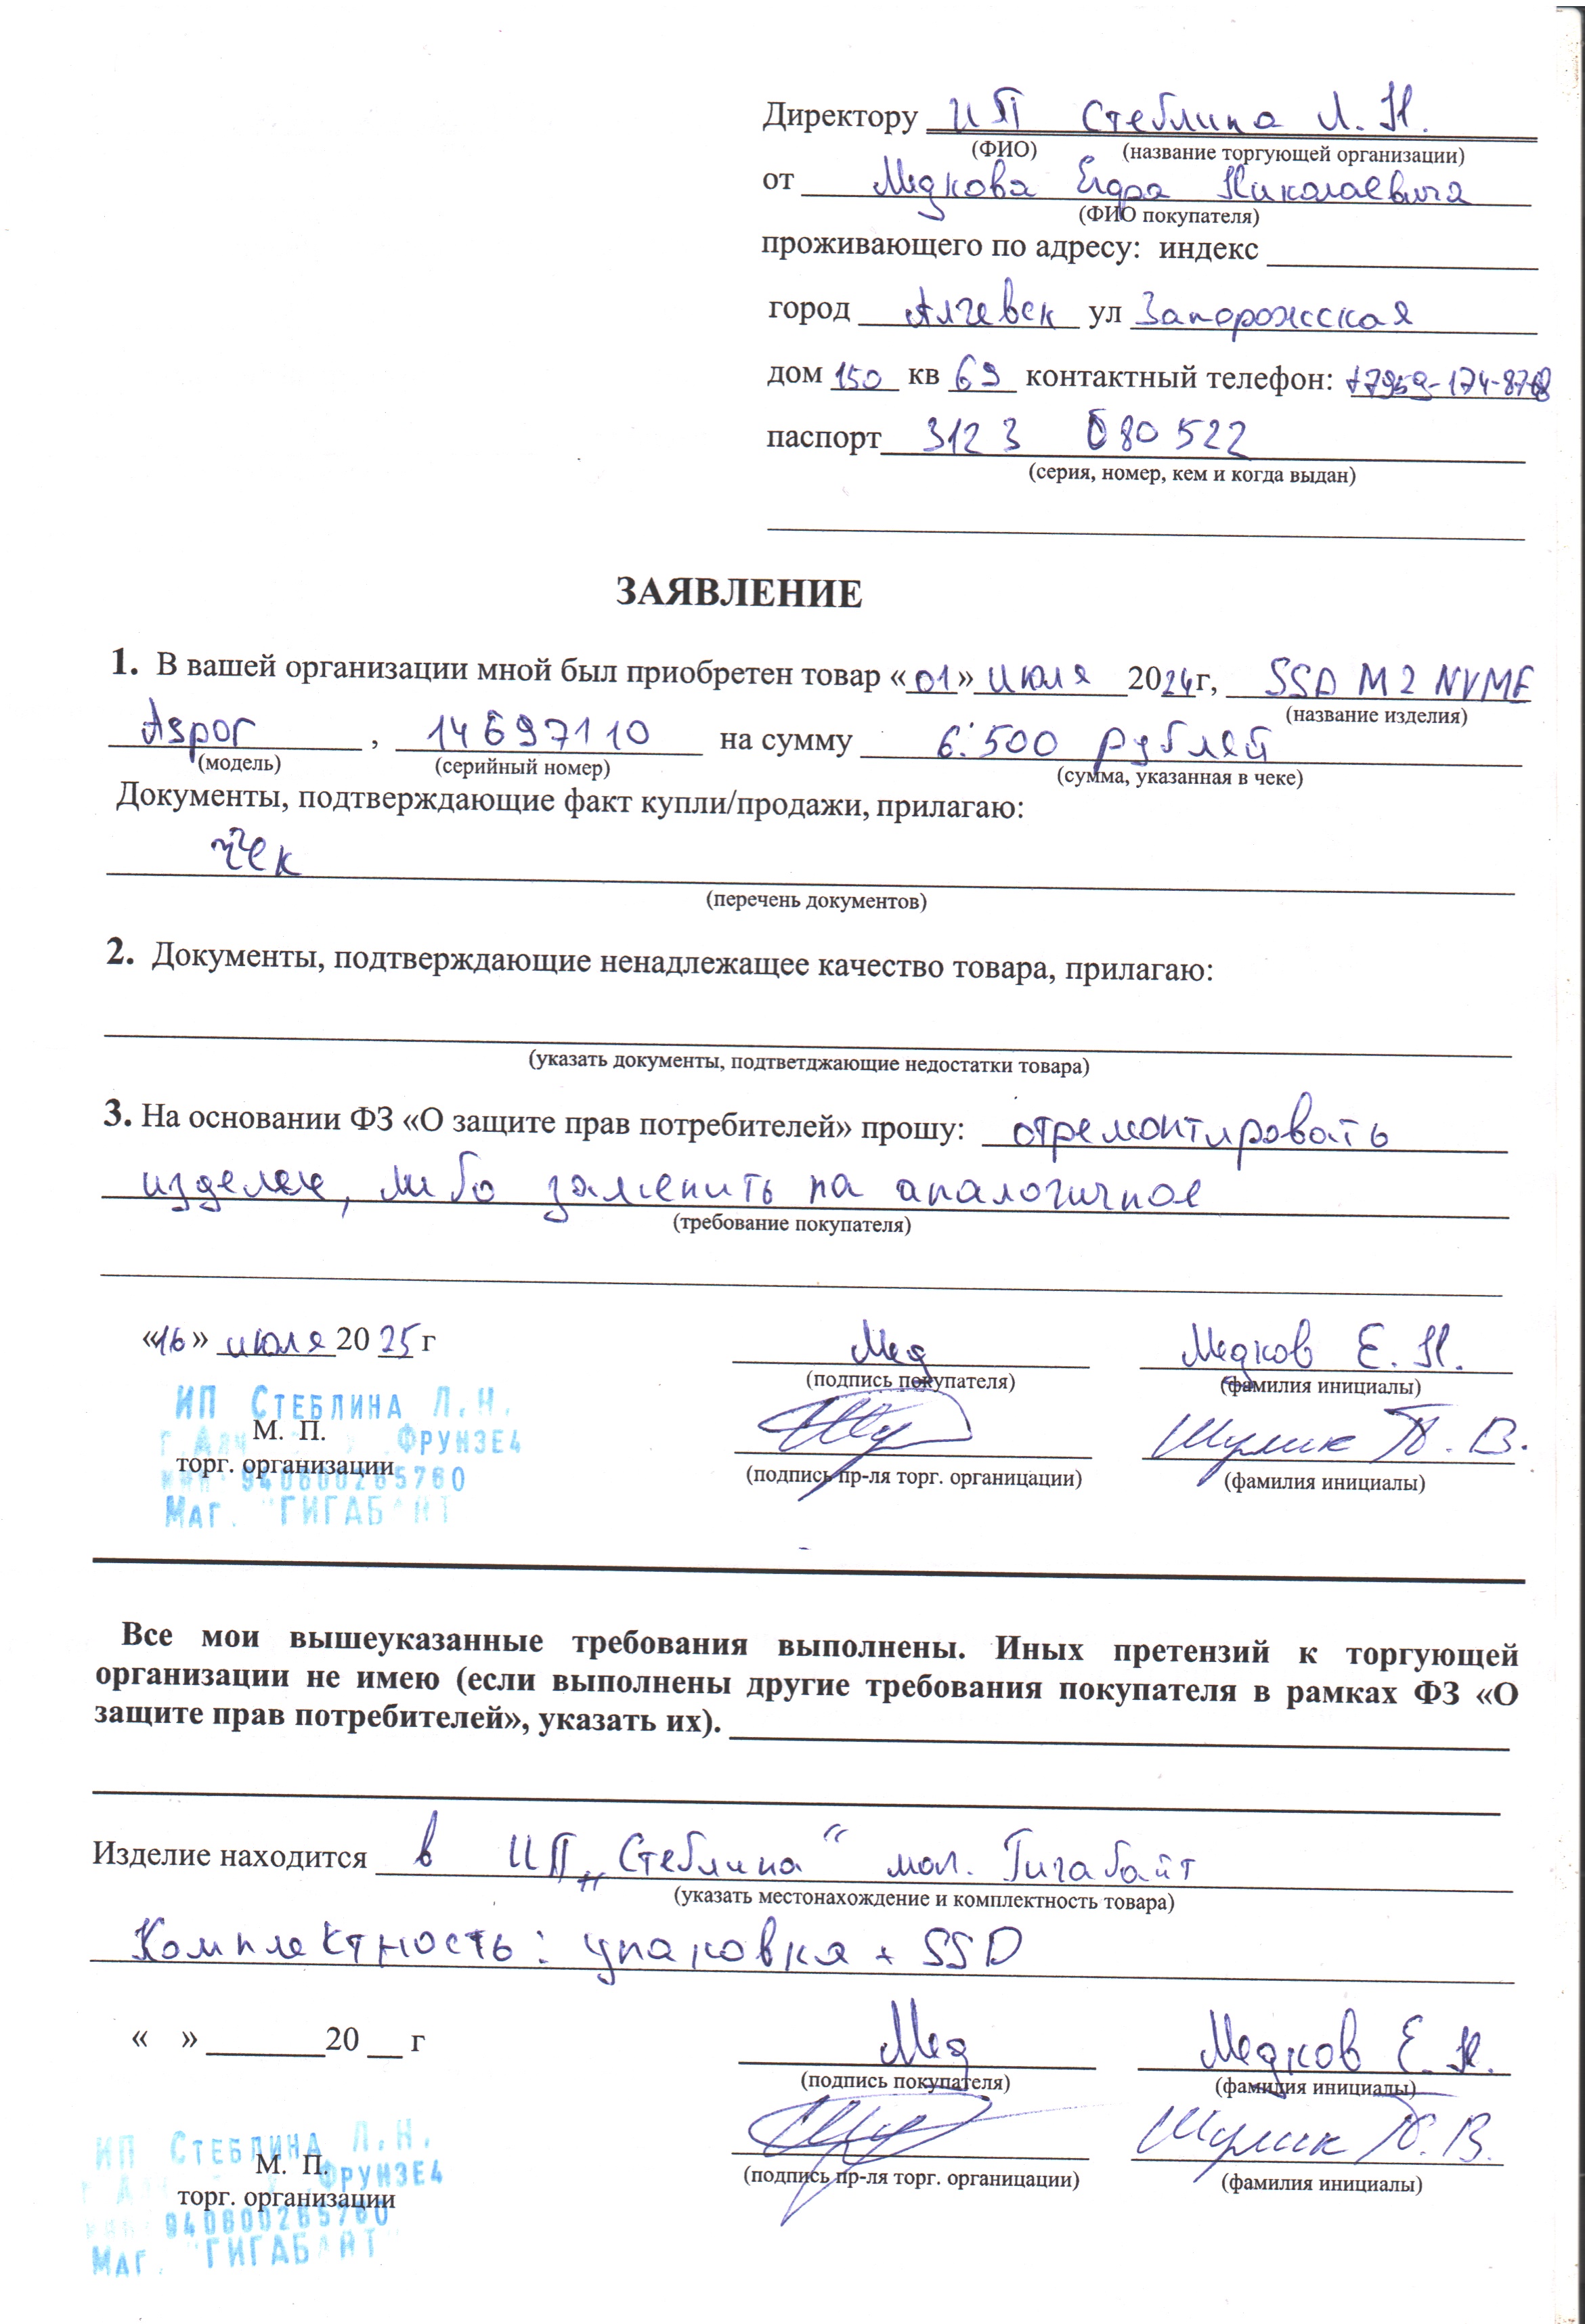 Директору ИП Стеблина Л. Н.
(ФИО) (название торгующей организации)
от Медкова Егора Николаевича
(ФИО покупателя)
проживающего по адресу: индекс
город Алчевск ул Запорожская
дом 150 кв 69 контактный телефон: +7959-174-87
паспорт 3123 080522
(серия, номер, кем и когда выдан)
ЗАЯВЛЕНИЕ
1. В вашей организации мной был приобретен товар «01» июля 2024г, SSD M2 NVME
(название изделия)
Aspor, 14697110 на сумму 6.500 рублей
(модель) (серийный номер) (сумма, указанная в чеке)
Документы, подтверждающие факт купли/продажи, прилагаю:
Чек
(перечень документов)
2. Документы, подтверждающие ненадлежащее качество товара, прилагаю:
(указать документы, подтветджающие недостатки товара)
3. На основании ФЗ «О защите прав потребителей» прошу: отремонтировать
изделие, либо заменить на аналогичное
(требование покупателя)
«16» июля 2025 г Мед Медков Е. Н.
(подпись покупателя) (фамилия инициалы)
ИП Стеблина Л.Н.
М. П. Шулик Т. В.
Фрунзе4
торг. организации (подпись пр-ля торг. органицации) (фамилия инициалы)
940600265760
Маг. "ГИГАБАЙТ"
Все мои вышеуказанные требования выполнены. Иных претензий к торгующей
организации не имею (если выполнены другие требования покупателя в рамках ФЗ «О
защите прав потребителей», указать их).
Изделие находится в ИП „Стеблина“ маг. Гигабайт
(указать местонахождение и комплектность товара)
Комплектность: упаковка + SSD
« » 20 г Мед Медков Е. Н.
(подпись покупателя) (фамилия инициалы)
ИП Стеблина Л.Н.
М. П. Шулик Т. В.
Фрунзе4
торг. организации (подпись пр-ля торг. органицации) (фамилия инициалы)
940600265760
Маг. "ГИГАБАЙТ"